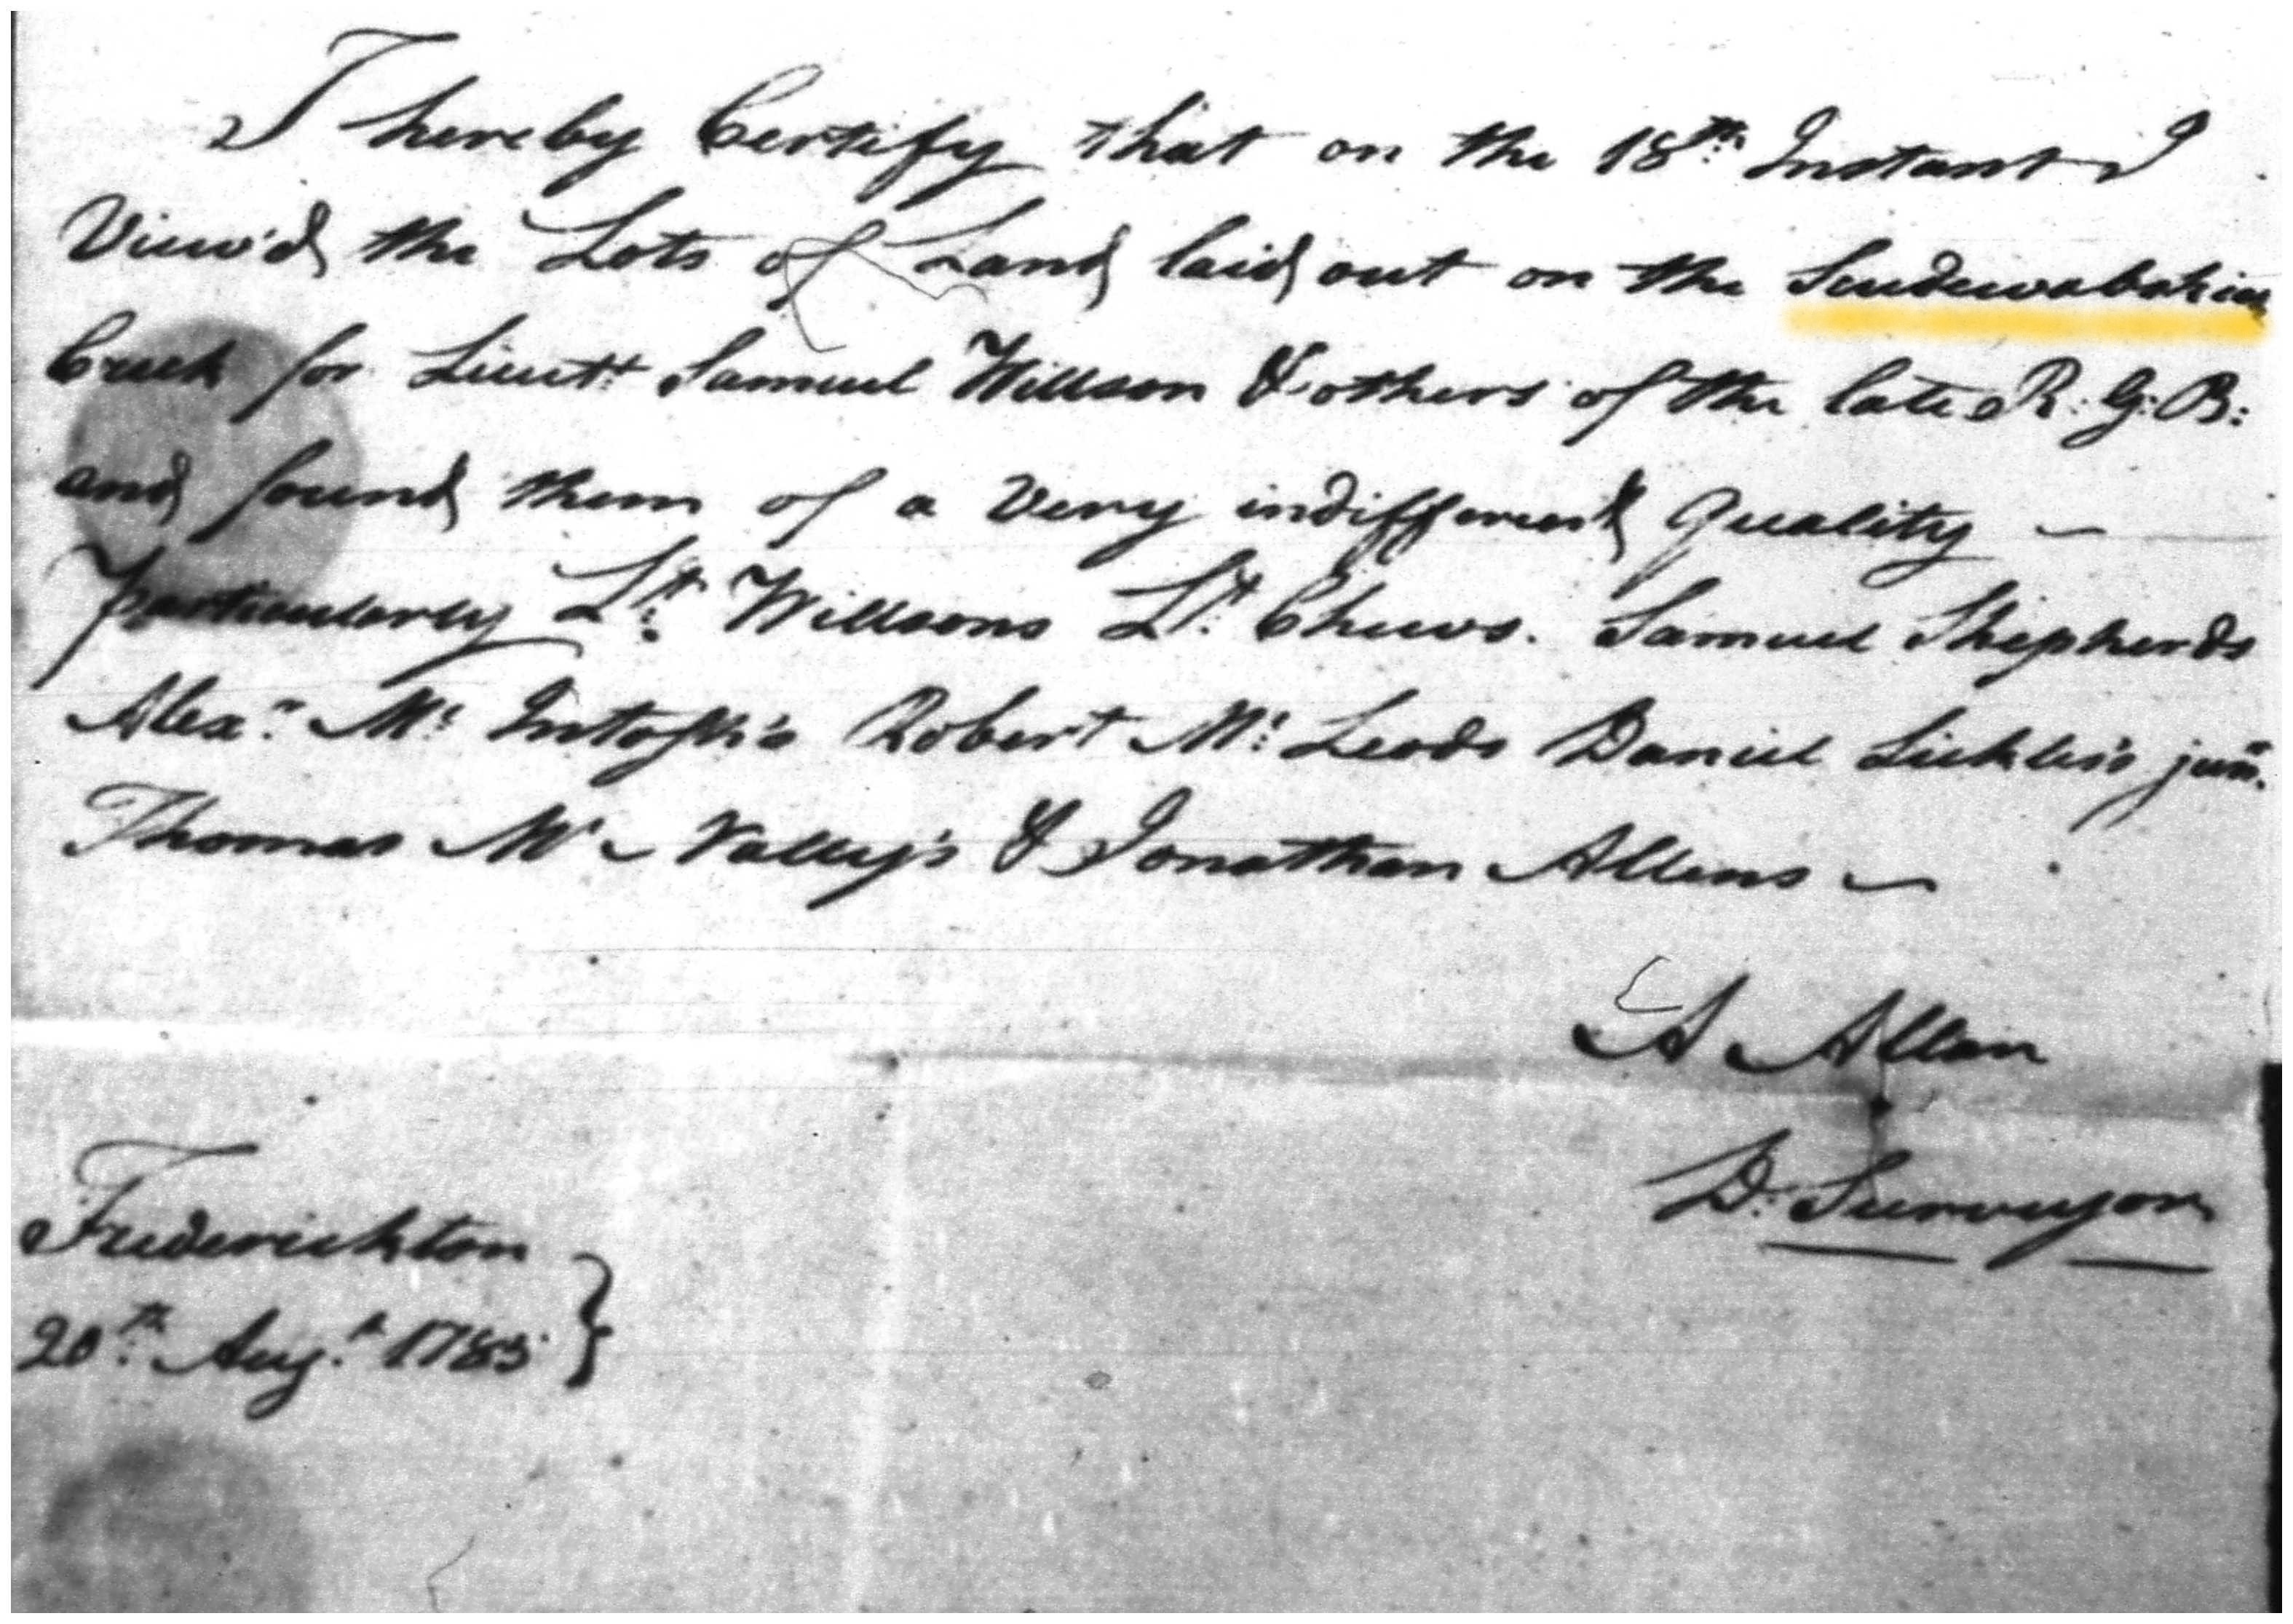 I hereby Certify that on the 18th Instant I
View'd the Lots of Land laid out on the
Creek for Lieutt Samuel Willson & others of the late R: G: B:
and found them of a Very indifferent Quality —
particularly Lt: Willsons Lt: Chews. Samuel Shepherds
Alexr: Mc: Intosh's Robert Mc: Leods Daniel Sickles's junr.
Thomas Mc Nally's & Jonathan Allens —
A Allen
D: Surveyor
Frederickton
20th: Augt: 1785 }